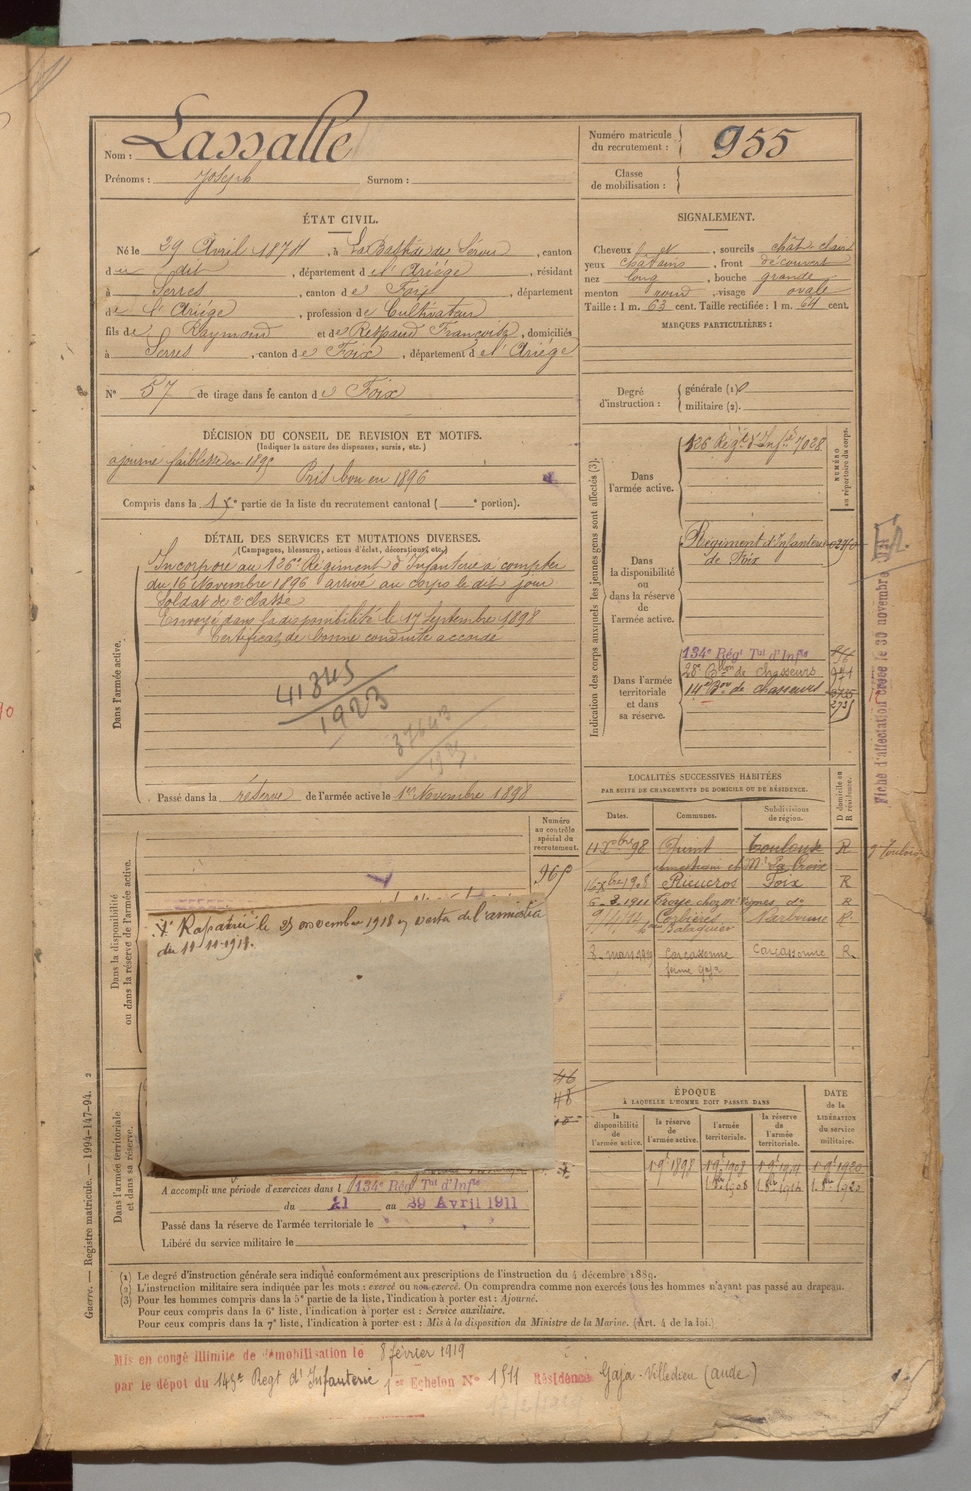 Nom : Lassalle
Prénoms : Joseph Surnom :
Numéro matricule du recrutement : 955
Classe de mobilisation :
ÉTAT CIVIL.
Né le 29 Avril 1874, à La Bastide de Sérou, canton
du dit, département de l'Ariége, résidant
à Serres, canton de Foix, département
de l'Ariége, profession de Cultivateur
fils de Raymond et de Respaud Françoise, domiciliés
à Serres, canton de Foix, département de l'Ariége
N° 57 de tirage dans le canton de Foix
SIGNALEMENT.
Cheveux et, sourcils chât. clair
yeux chatains, front découvert
nez long, bouche grande
menton rond, visage ovale
Taille : 1 m. 63 cent. Taille rectifiée : 1 m. 64 cent.
MARQUES PARTICULIÈRES :
Degré d'instruction : générale (1)
militaire (2).
DÉCISION DU CONSEIL DE REVISION ET MOTIFS.
(Indiquer la nature des dispenses, sursis, etc.)
ajourné faiblesse en 1895
Pris bon en 1896
Compris dans la 1re partie de la liste du recrutement cantonal ( e portion).
DÉTAIL DES SERVICES ET MUTATIONS DIVERSES.
(Campagnes, blessures, actions d'éclat, décorations, etc.)
Dans l'armée active.
Incorporé au 126e Régiment d'Infanterie à compter
du 16 Novembre 1896 arrivé au corps le dit jour
Soldat de 2e classe
Envoyé dans la disponibilité le 17 Septembre 1898
Certificat de bonne conduite accordé
41345
1923
37643
Passé dans la réserve de l'armée active le 1er Novembre 1898
Indication des corps auxquels les jeunes gens sont affectés (3).
NUMÉRO au répertoire du corps.
Dans l'armée active.
126 Régt d'Infie 7028
Dans la disponibilité ou dans la réserve de l'armée active.
Régiment d'Infanterie
de Foix
Dans l'armée territoriale et dans sa réserve.
134e Régt Tal d'Infie
28e Bllon de chasseurs
14e Bon de chasseurs
Fiche d'affectation créée le 30 novembre
LOCALITÉS SUCCESSIVES HABITÉES
PAR SUITE DE CHANGEMENTS DE DOMICILE OU DE RÉSIDENCE.
Dates. Communes. Subdivisions de région. D domicile ou R résidence.
11 Xbre 98 Toulouse R
16 Xbre 1908 Rieucros Foix R
Corbières Narbonne R
8 mars 1919 Carcassonne Carcassonne R.
ferme Gaja
Numéro au contrôle spécial du recrutement.
965
Dans la disponibilité ou dans la réserve de l'armée active.
Rapatrié le 25 novembre 1918 en vertu de l'amnistie
du 11-11-1918.
Dans l'armée territoriale et dans sa réserve.
A accompli une période d'exercices dans l 134e Rég Tal d'Infie
du 21 au 29 Avril 1911
Passé dans la réserve de l'armée territoriale le
Libéré du service militaire le
ÉPOQUE
À LAQUELLE L'HOMME DOIT PASSER DANS
la disponibilité de l'armée active. la réserve de l'armée active. l'armée territoriale. la réserve de l'armée territoriale.
DATE de la LIBÉRATION du service militaire.
1 9e 1898 1 9e 1908 1 9e 1914 1 9e 1920
(1) Le degré d'instruction générale sera indiqué conformément aux prescriptions de l'instruction du 4 décembre 1889.
(2) L'instruction militaire sera indiquée par les mots : exercé ou non exercé. On comprendra comme non exercés tous les hommes n'ayant pas passé au drapeau.
(3) Pour les hommes compris dans la 5e partie de la liste, l'indication à porter est : Ajourné.
Pour ceux compris dans la 6e liste, l'indication à porter est : Service auxiliaire.
Pour ceux compris dans la 7e liste, l'indication à porter est : Mis à la disposition du Ministre de la Marine. (Art. 4 de la loi.)
Guerre. — Registre matricule. — 1994-147-94. 2
Mis en congé illimité de démobilisation le 8 février 1919
par le dépôt du 143e Regt d'Infanterie 1er Echelon N° 1511 Résidence Gaja-Villedieu (aude)